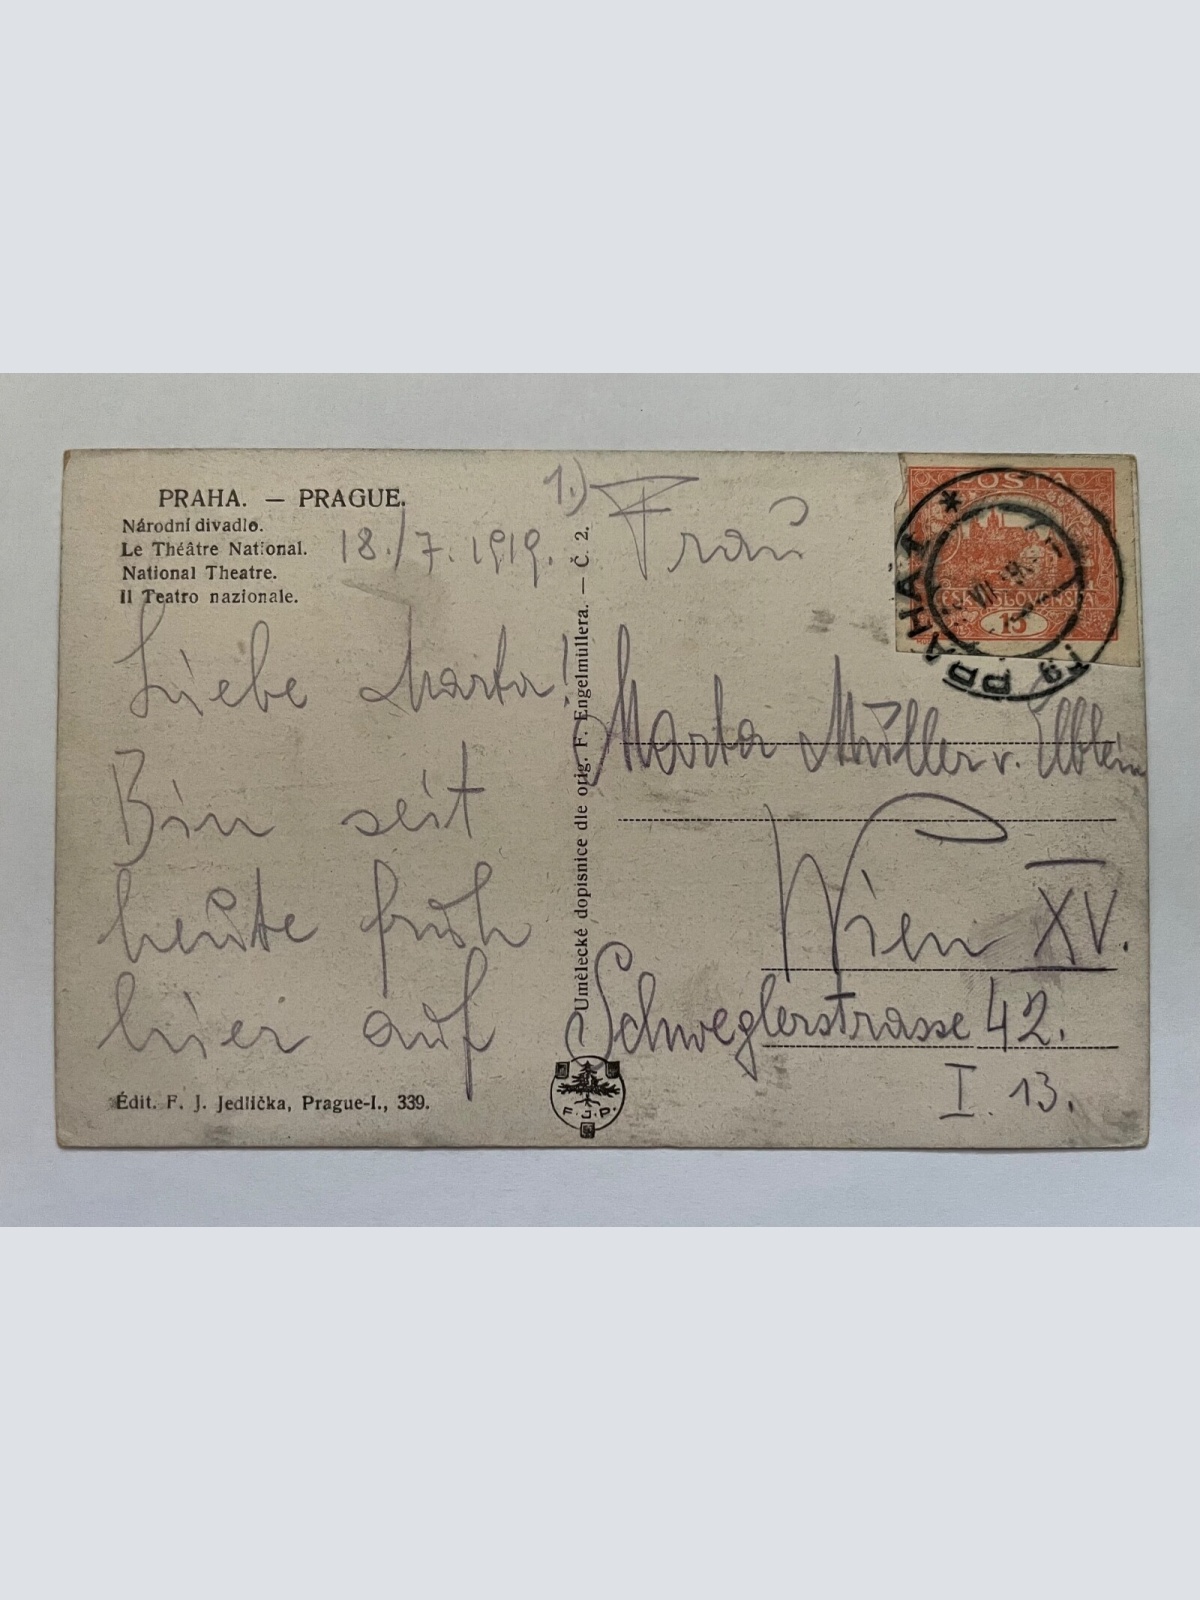 PRAHA. — PRAGUE.
Národní divadlo.
Le Théâtre National.
National Theatre.
Il Teatro nazionale.
1.)
18./7. 1919.
Liebe Marta!
Bin seit
heute früh
hier auf
Édit. F. J. Jedlička, Prague-I., 339.
Umělecké dopisnice dle orig. F. Engelmüllera. — Č. 2.
F. J. P.
POŠTA
ČESKO-SLOVENSKÁ
15
PRAHA 1
PRAHA
Frau
Marta Müller v.
Wien XV.
Schweglerstrasse 42.
I. 13.